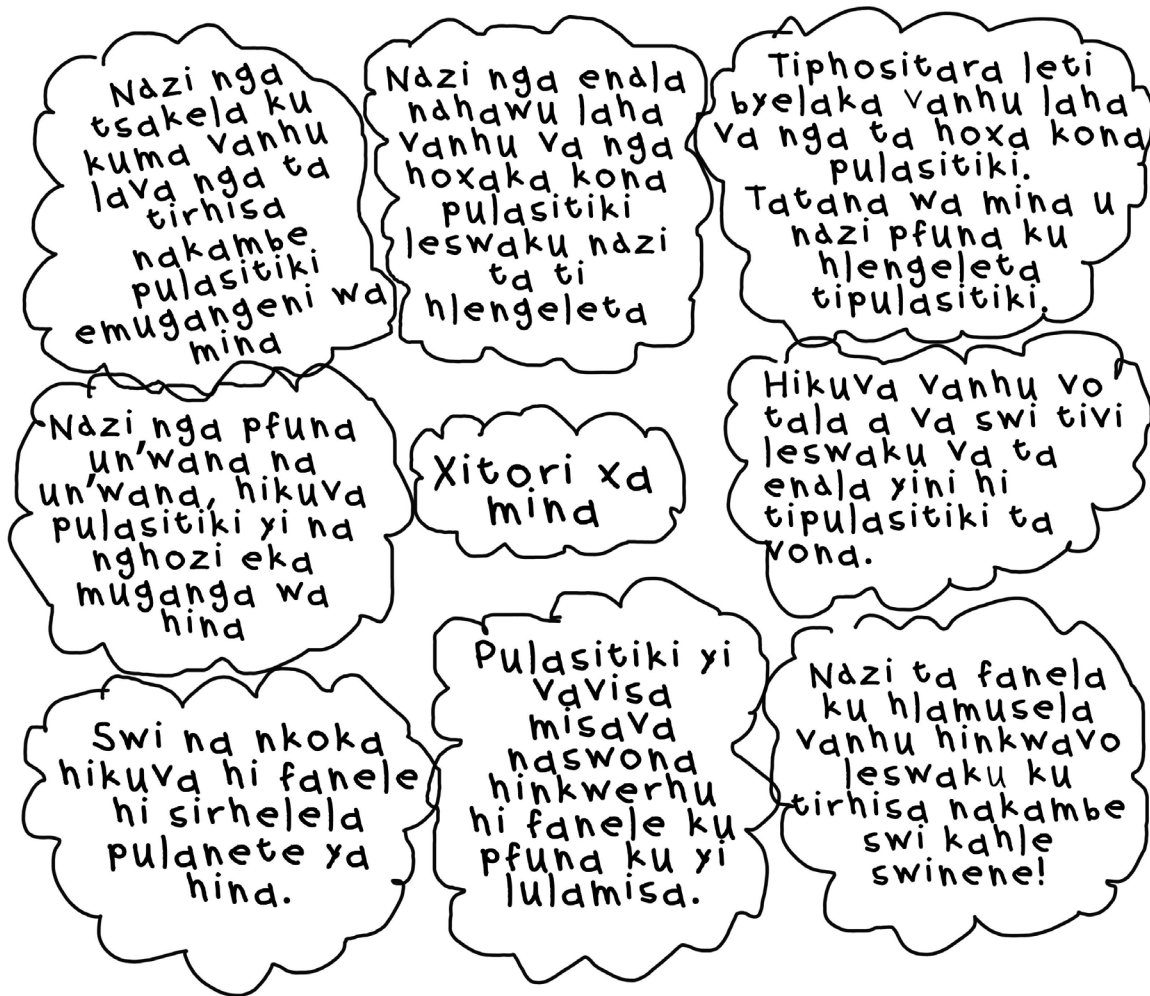 Ndzi nga
tsakela ku
kuma vanhu
lava nga ta
tirhisa
nakambe
pulasitiki
emugangeni wa
mina
Ndzi nga endla
ndhawu laha
vanhu va nga
hoxaka kona
pulasitiki
leswaku ndzi
ta ti
hlengeleta
Tiphositara leti
byelaka vanhu laha
va nga ta hoxa kona
pulasitiki.
Tatana wa mina u
ndzi pfuna ku
hlengeleta
tipulasitiki.
Ndzi nga pfuna
un'wana na
un'wana, hikuva
pulasitiki yi na
nghozi eka
muganga wa
hina
Xitori xa
mina
Hikuva vanhu vo
tala a va swi tivi
leswaku va ta
endla yini hi
tipulasitiki ta
vona.
Swi na nkoka
hikuva hi fanele
hi sirhelela
pulanete ya
hina.
Pulasitiki yi
vavisa
misava
naswona
hinkwerhu
hi fanele ku
pfuna ku yi
lulamisa.
Ndzi ta fanela
ku hlamusela
vanhu hinkwavo
leswaku ku
tirhisa nakambe
swi kahle
swinene!